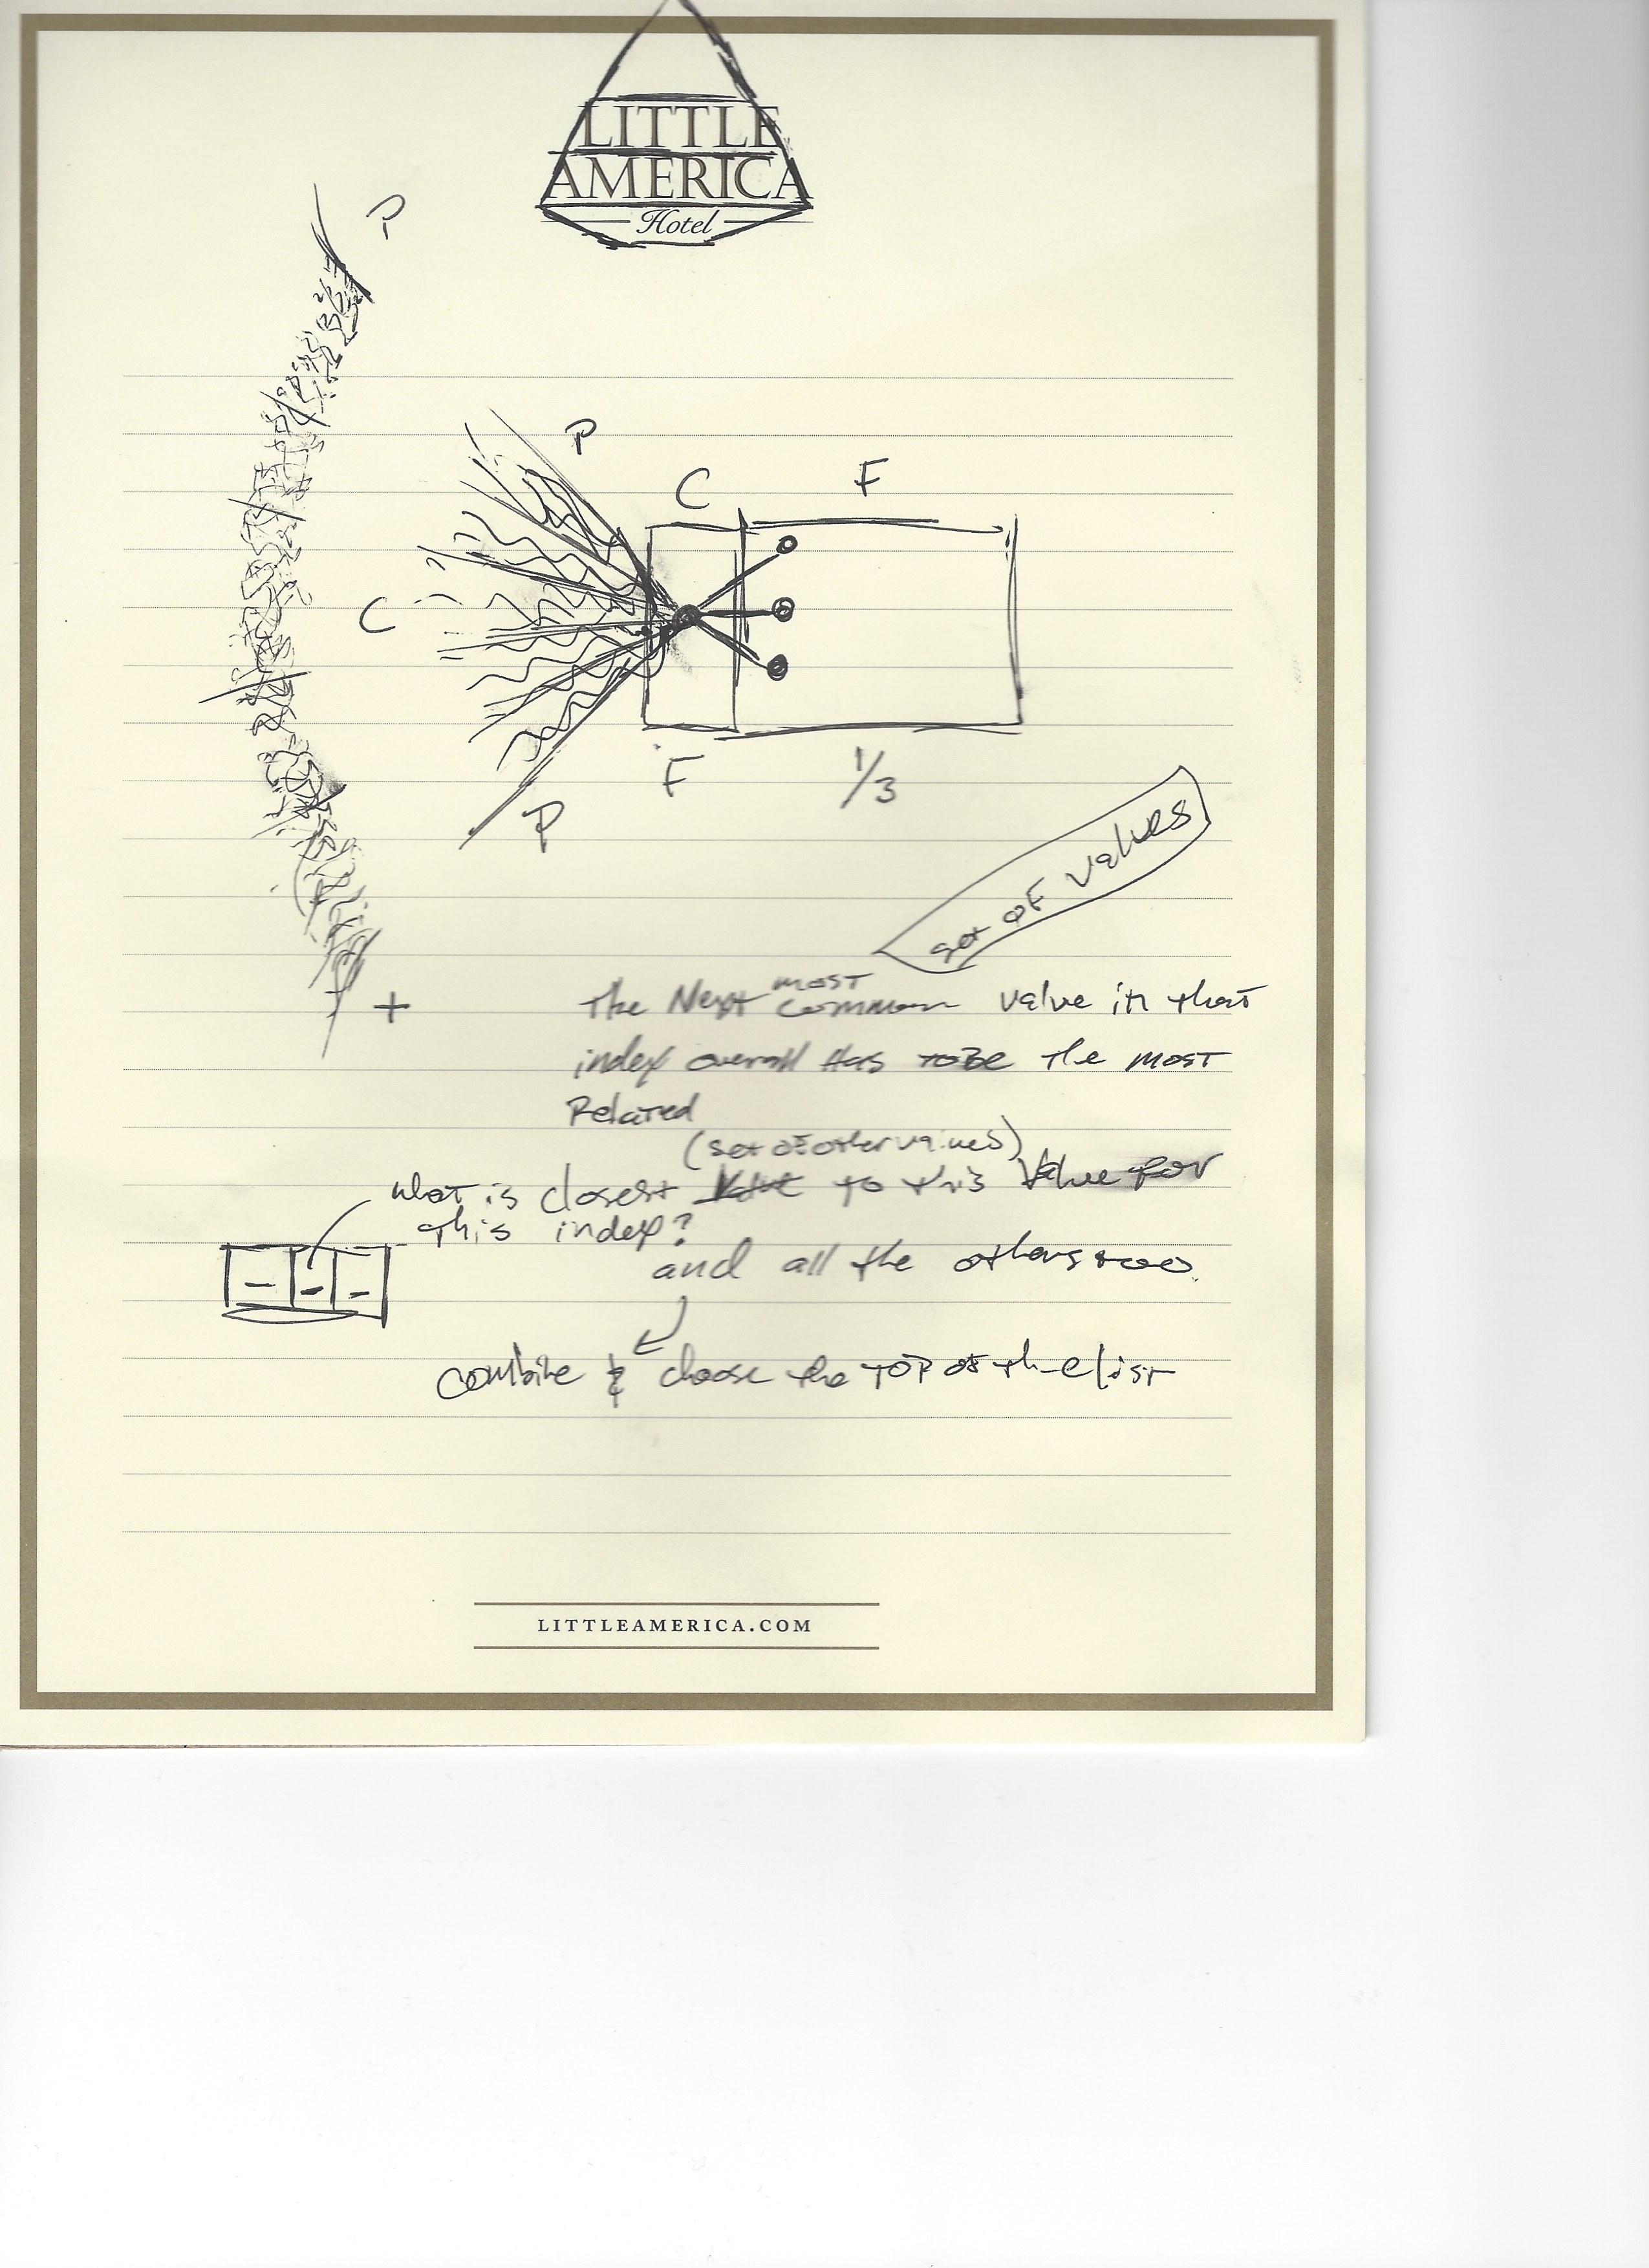 LITTLE
AMERICA
Hotel
P
P
C
F
C
F
1/3
P
set of values
+
most
The Next common value in that
index overall Has to Be the most
Related
(set of other values)
what is closest to this Value for
this index?
and all the others too
combine & choose the TOP of the list
LITTLEAMERICA.COM